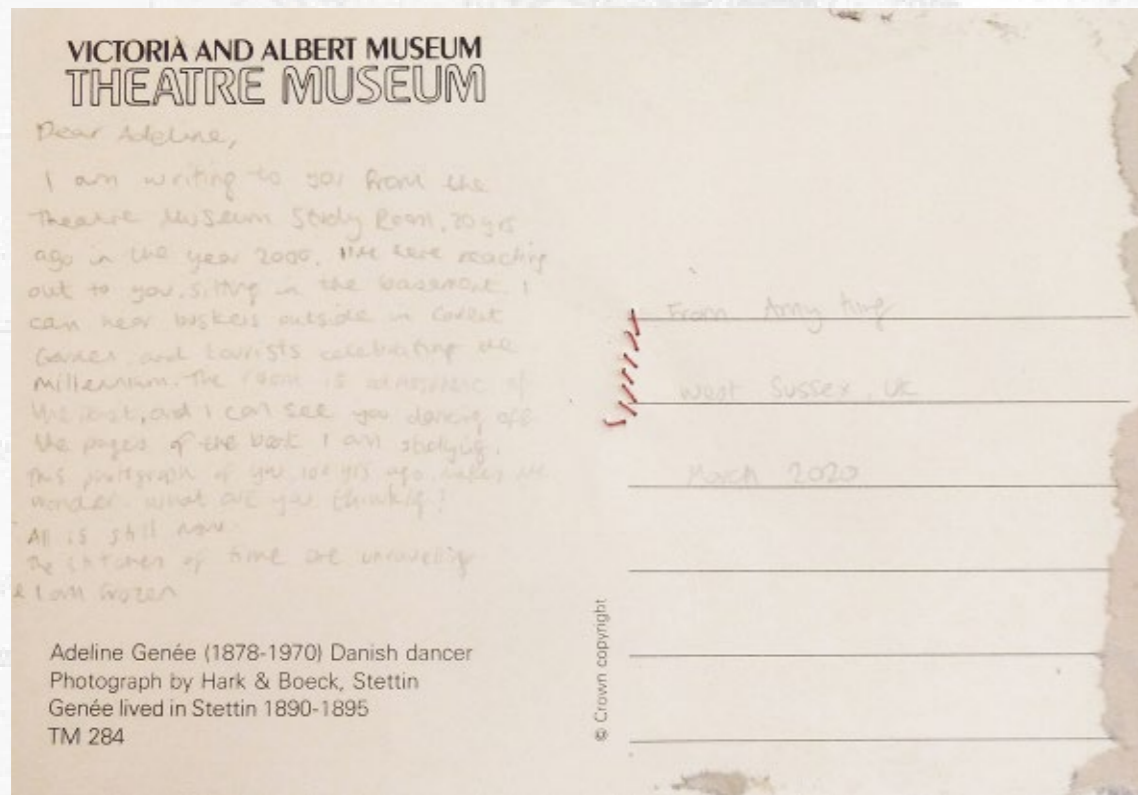 VICTORIA AND ALBERT MUSEUM
THEATRE MUSEUM
Dear Adeline,
I am writing to you from the
Theatre Museum Study Room, 20 yrs
ago in the year 2000. here reaching
out to you, sitting in the basement. I
can hear buskers outside in Covent
Garden and tourists celebrating the
Millennium. The room is of
the past, and I can see you dancing off
the pages of the book I am studying.
This photograph of you, 100 yrs ago, makes me
wonder what are you thinking?
All is still now.
The stitches of time are unravelling
& I am frozen
Adeline Genée (1878-1970) Danish dancer
Photograph by Hark & Boeck, Stettin
Genée lived in Stettin 1890-1895
TM 284
© Crown copyright
From Amy King
West Sussex, UK
March 2020